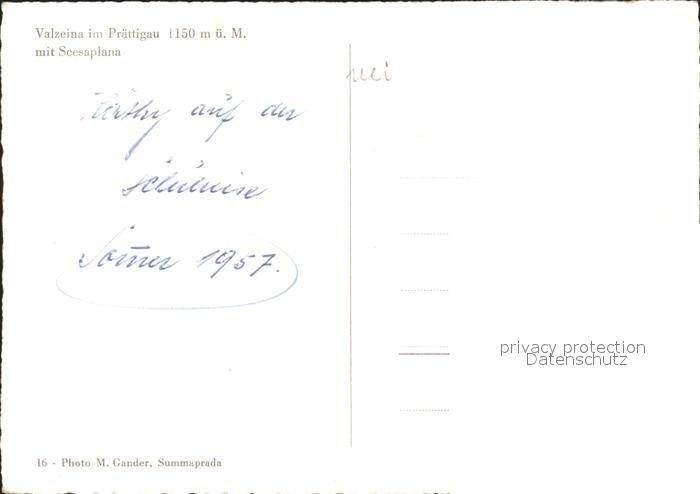 Valzeina im Prättigau 1150 m ü. M.
mit Scesaplana
auf der
Som̄er 1957.
16 - Photo M. Gander, Summaprada
privacy protection
Datenschutz